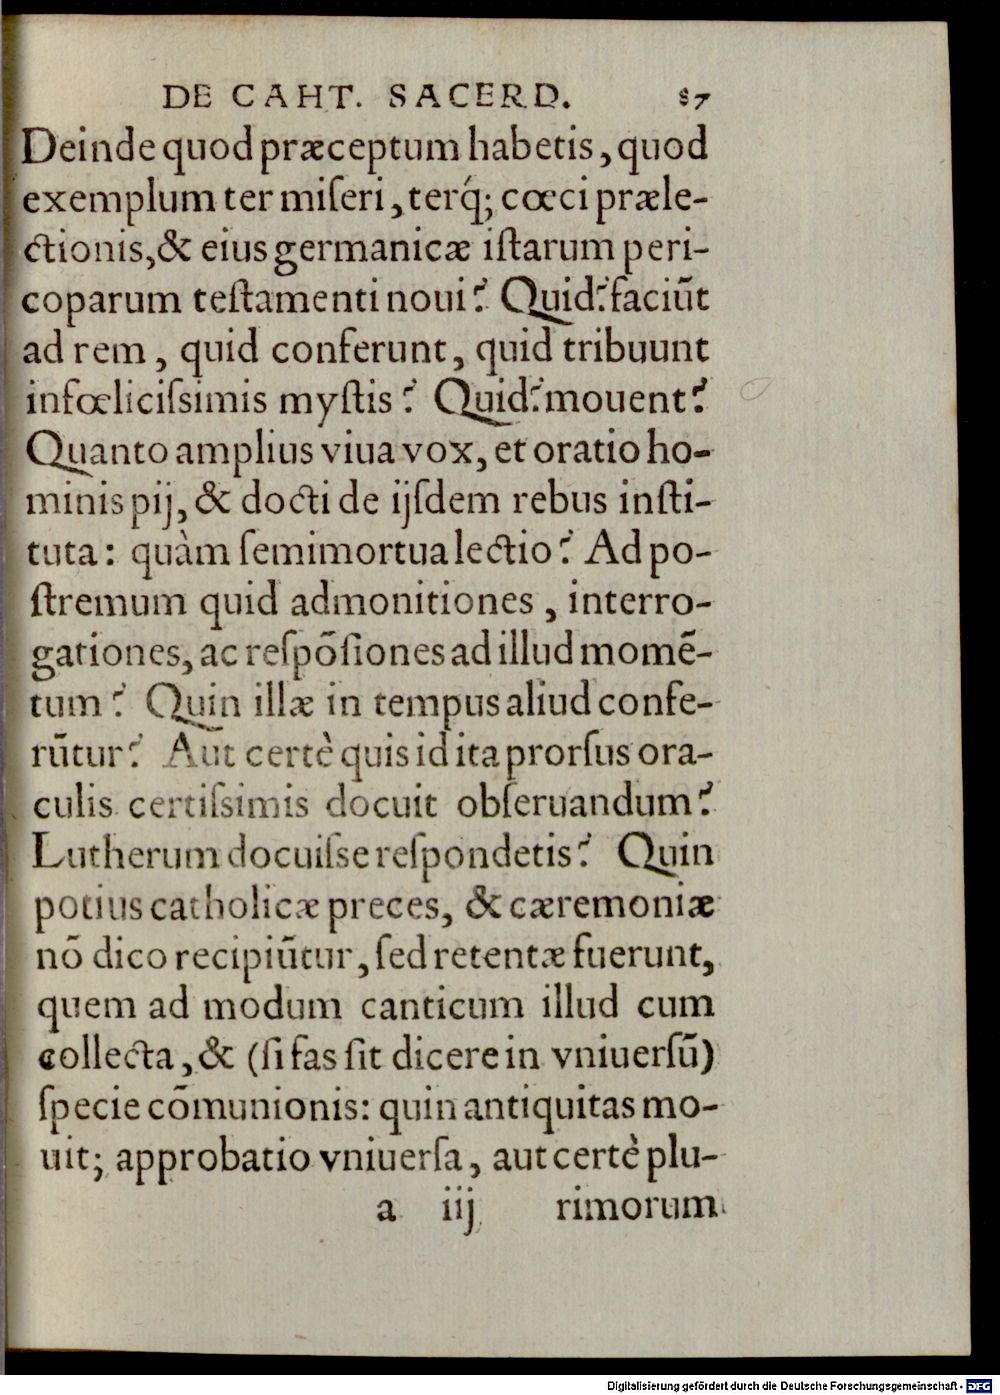 DE CAHT. SACERD. 87
Deinde quod præceptum habetis, quod
exemplum ter miſeri, terq́; cœci præle-
ctionis, & eius germanicæ iſtarum peri-
coparum teſtamenti noui? Quid? faciūt
ad rem, quid conferunt, quid tribuunt
infœliciſsimis myſtis? Quid? mouent?
Quanto amplius viua vox, et oratio ho-
minis pij, & docti de ijſdem rebus inſti-
tuta: quàm ſemimortua lectio? Ad po-
ſtremum quid admonitiones, interro-
gationes, ac reſpōſiones ad illud momē-
tum? Quin illæ in tempus aliud confe-
rūtur? Aut certè quis id ita prorſus ora-
culis certiſsimis docuit obſeruandum?
Lutherum docuiſse reſpondetis? Quin
potius catholicæ preces, & cæremoniæ
nō dico recipiūtur, ſed retentæ fuerunt,
quem ad modum canticum illud cum
collecta, & (ſi fas ſit dicere in vniuerſū)
ſpecie cōmunionis: quin antiquitas mo-
uit; approbatio vniuerſa, aut certè plu-
a iij rimorum
Digitalisierung gefördert durch die Deutsche Forschungsgemeinschaft - DFG